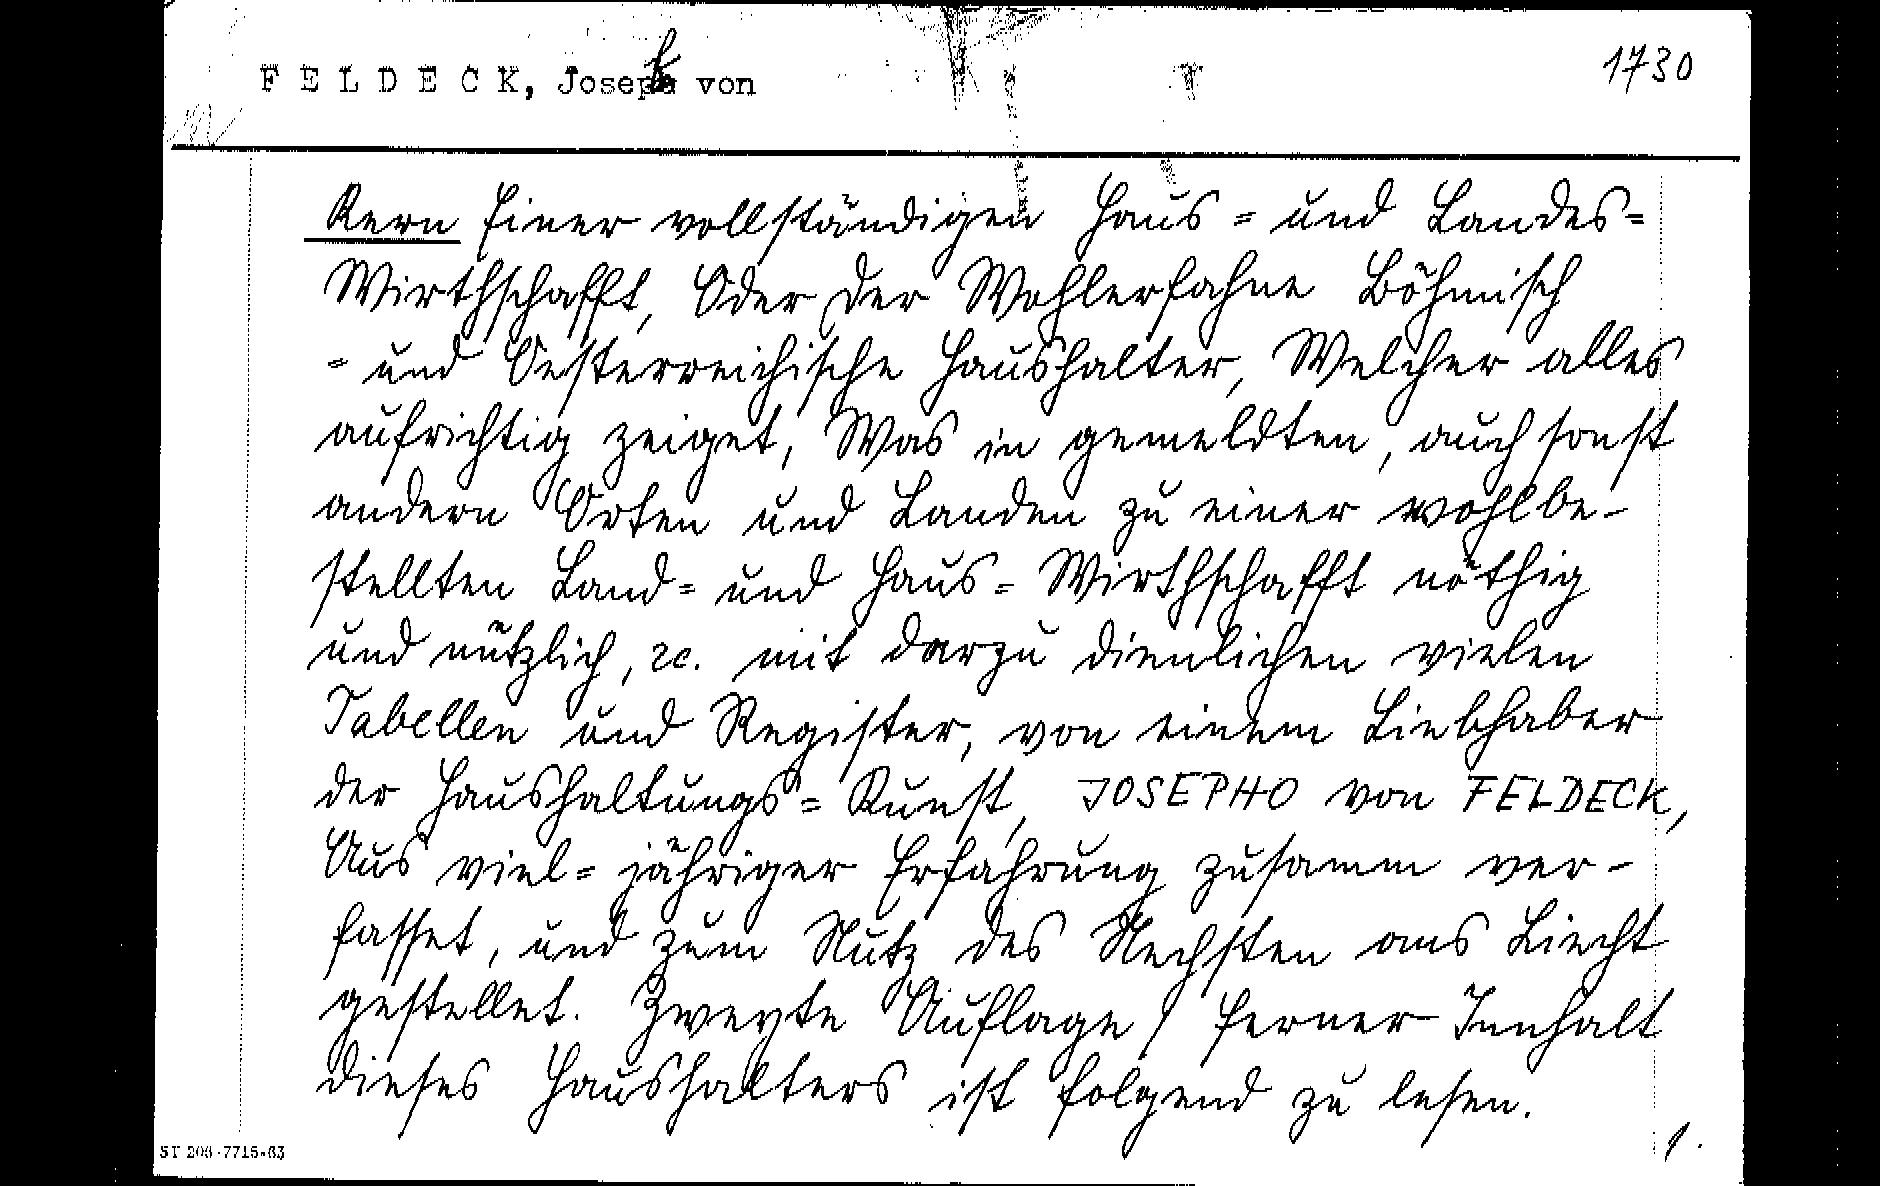 FELDECK, Joseph von
1730
Kern Einer vollständigen Haus= und Landes=
Wirthschafft, Oder der Wohlerfahne Böhmisch
= und Oesterreichische Haushalter, Welcher alles
aufrichtig zeiget, Was in gemeldten, auch sonst
andern Orten und Landen zu einer wohlbe-
stellten Land= und Haus= Wirthschafft nöthig
und nützlich, ꝛc. mit darzu dienlichen vielen
Tabellen und Register, von einem Liebhaber
der Haushaltungs= Kunst, JOSEPHO von FELDECK,
Aus viel= jähriger Erfahrung zusamm ver-
fasset, und zum Nutz des Nechsten ans Liecht
gestellet. Zweyte Auflage / Ferner Innhalt
dieses Haushalters ist folgend zu lesen.
ST 206-7715-63
1.